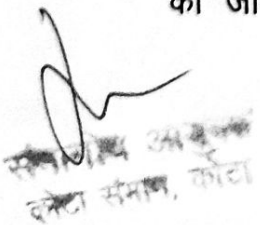 की जा
संभागीय आयुक्त
कोटा संभाग, कोटा